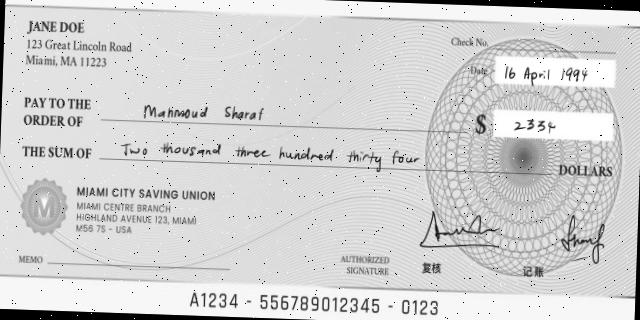 JANE DOE
123 Great Lincoln Road
Miami, MA 11223
Check No.
Date 16 April 1994
PAY TO THE
ORDER OF Mahmoud Sharaf
$ 2334
THE SUM OF Two thousand three hundred thirty four DOLLARS
M
MIAMI CITY SAVING UNION
MIAMI CENTRE BRANCH
HIGHLAND AVENUE 123, MIAMI
M56 7S - USA
MEMO
AUTHORIZED
SIGNATURE
复核
记账
A1234 - 556789012345 - 0123